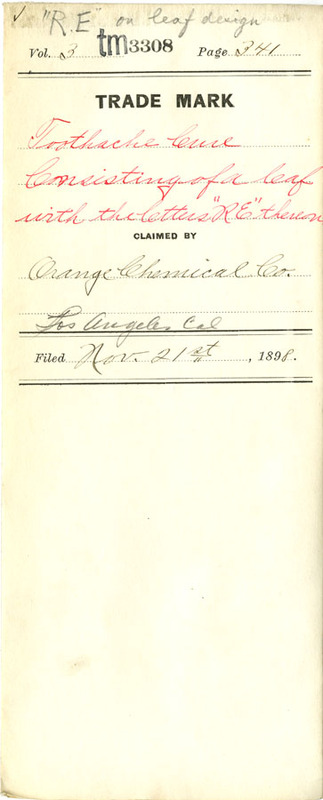 ✓ "R.E" on leaf design
Vol. 3 tm3308 Page 341
TRADE MARK
Toothache Cure
Consisting of a leaf
with the letters "RE" thereon
CLAIMED BY
Orange Chemical Co.
Los Angeles, Cal
Filed Nov. 21st, 1898.